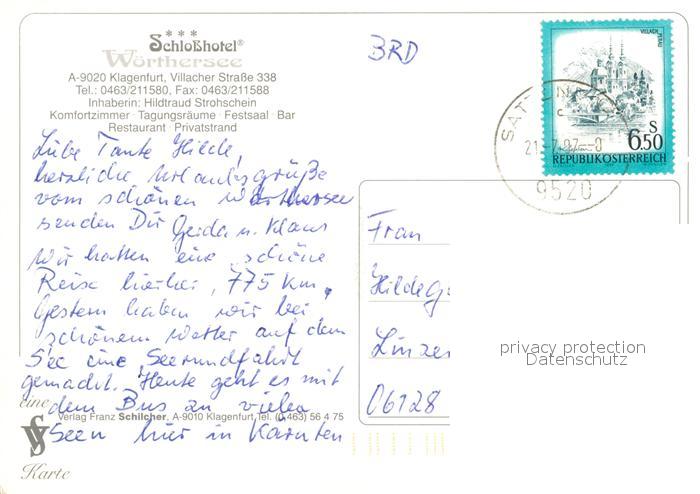 BRD
Schloßhotel®
Wörthersee
A-9020 Klagenfurt, Villacher Straße 338
Tel.: 0463/211580, Fax: 0463/211588
Inhaberin: Hildtraud Strohschein
Komfortzimmer · Tagungsräume · Festsaal · Bar
Restaurant · Privatstrand
VILLACH, PERAU
S
6.50
REPUBLIK ÖSTERREICH
SAT
21.-7.97-8
9520
Liebe Tante Hilde,
herzliche Urlaubsgrüße
vom schönen Wörthersee
senden Dir Gerda u. Klaus
Wir hatten eine schöne
Reise hierher, 775 km.
Gestern haben wir bei
schönem Wetter auf dem
See eine Seerundfahrt
gemacht. Heute geht es mit
dem Bus zu vielen
Seen hier in Kärnten
Frau
Hildeg
Linzer
06128
privacy protection
Datenschutz
eine
Verlag Franz Schilcher, A-9010 Klagenfurt, Tel. (0463) 56 4 75
Karte